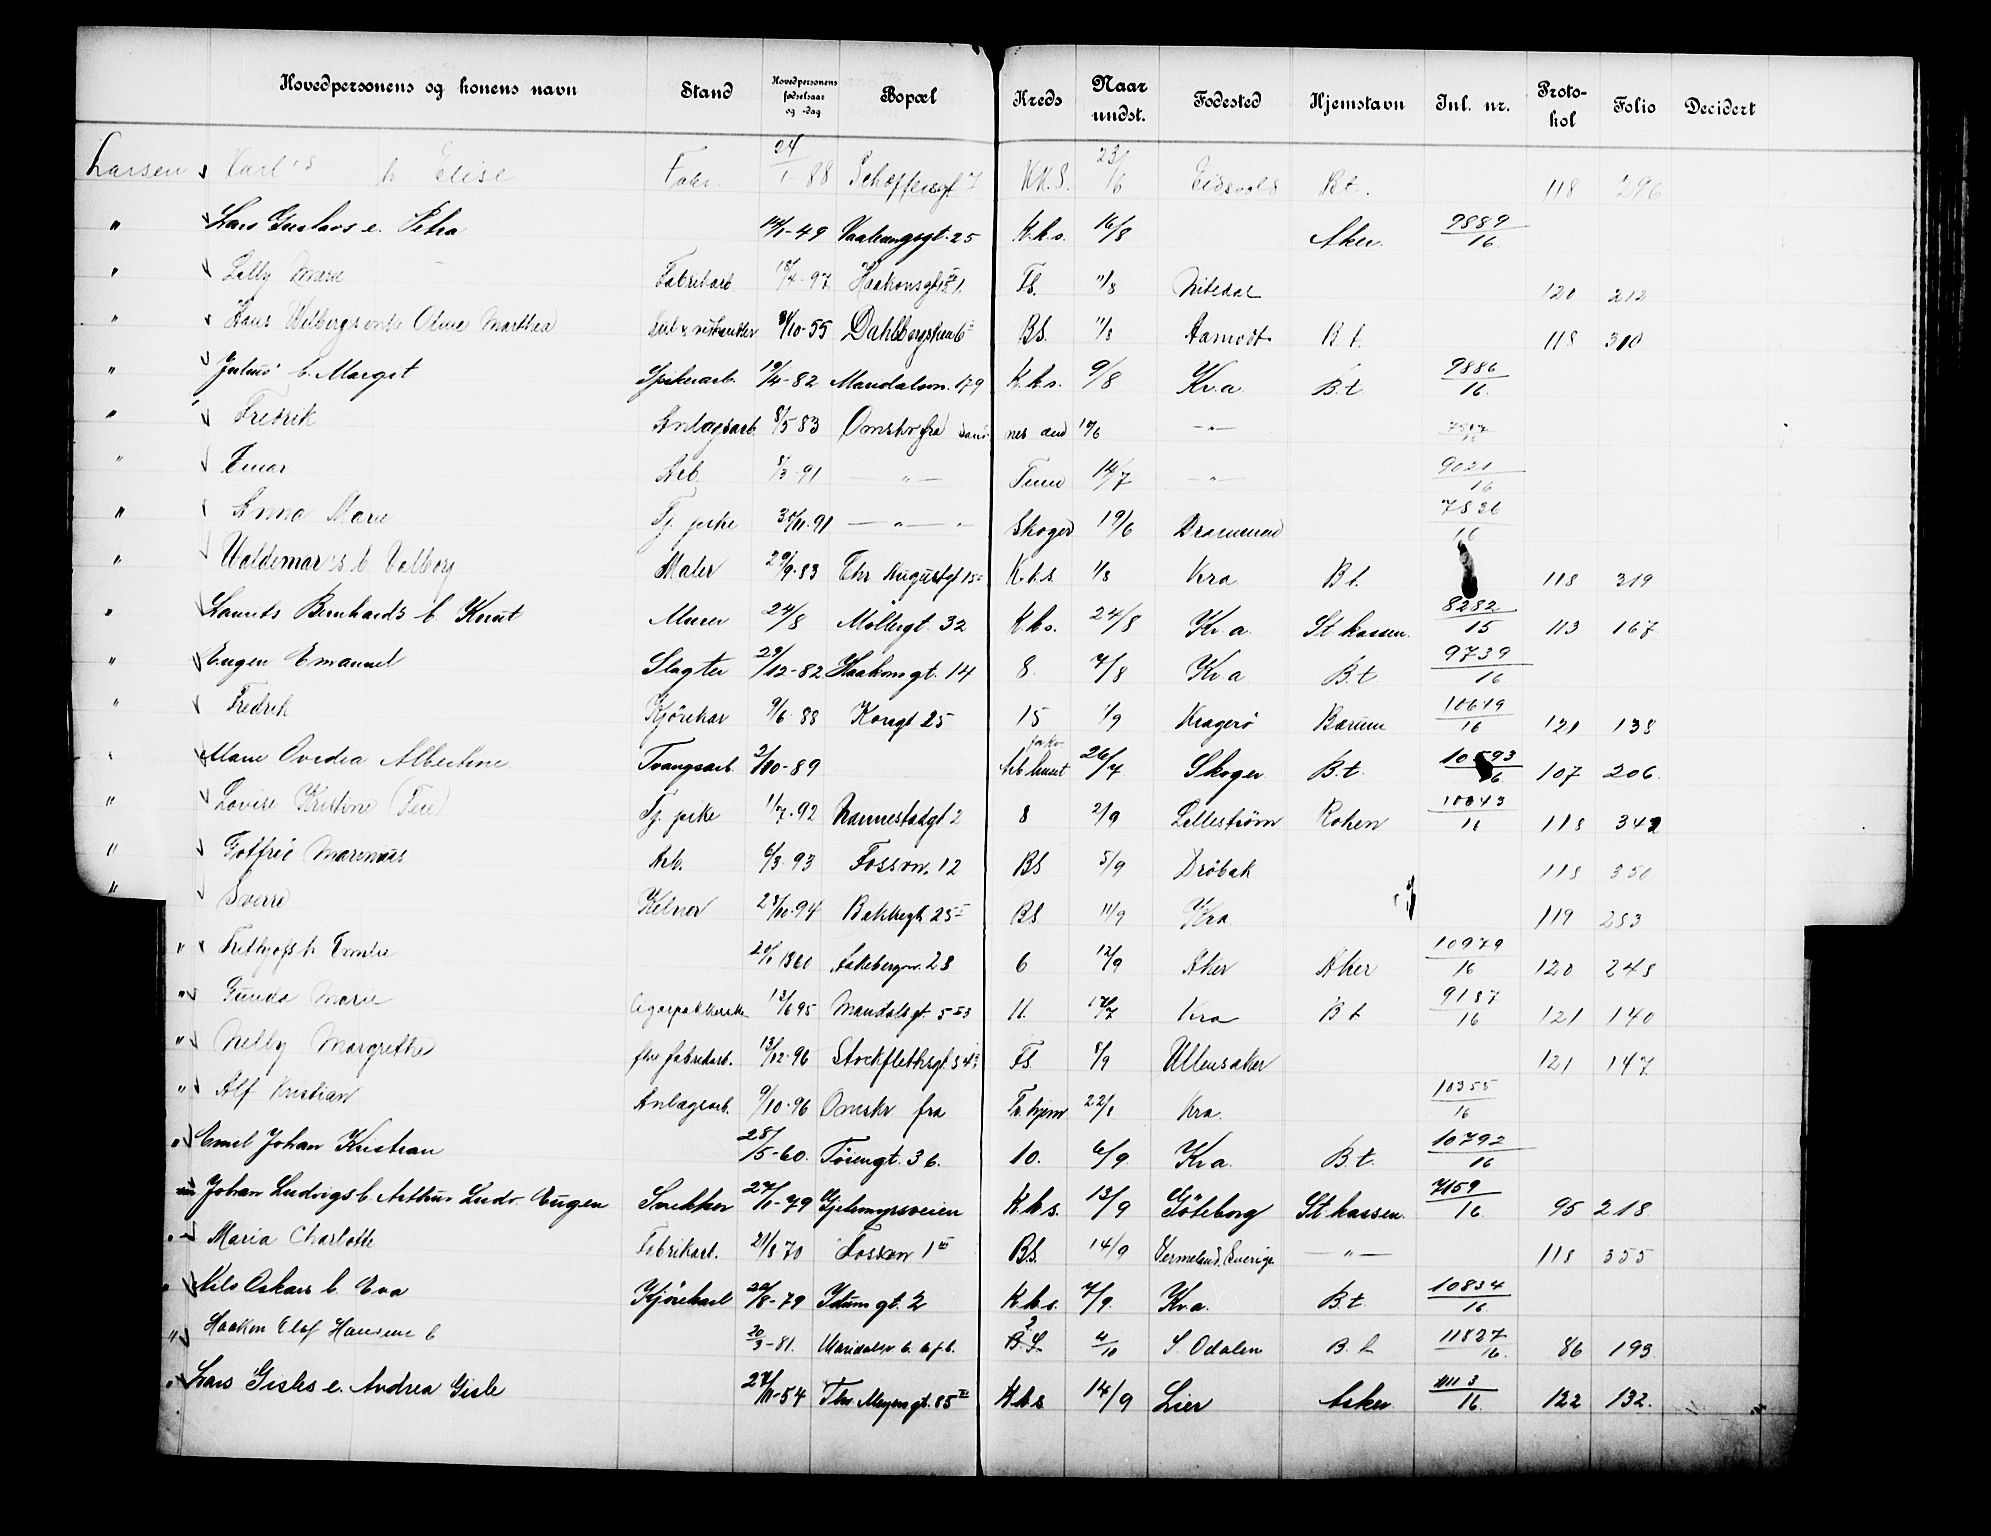 Hovedpersonens og konens navn Stand Hovedpersonens fødselsaar og -dag Bopæl Kreds Naar undst. Fødested Hjemstavn Inl. nr. Proto-kol Folio Decidert
Larsen Karl's h Elise Fabr. 24/1 88 Schøffersgt 7 KK.S. 23/6 Eidsvold B.t. 118 296
" Lars Gustavs e. Petra 1-49 Vaalerengsgt. 25 K.k.s. 16/8 Aker. 9889/16
" Lilly Marie Fabrikarb. 97 Haakonsgt FS. 11/8 Nitedal 120 212
" Hans Olme Marthea 10-55 BS. 11/8 Aamodt B.t. 118 310
" Julius' b. Margit Spikerarb. 19/4-82 Maridalsvn. 179 K.k.s. 9/8 Kr.a. B.t. 9886/16.
" Fredrik Anlægsarb. 8/5 83 Omskr fra Sand nes aud 10/6 —"—
" Einar Arb. 8/3-91 —"— 14/7 —"— 9021/16
" Anna Marie Tj. pike 30/11.91 —"— " Skoger 19/6 Drammen 7826/16
" Waldemar's b Valborg Maler 29/9.83 Chr Augustgt 15 K.k.s. 1/8 Kra B.t. 118 319
" Laurits Bernhards b. Knut Murer 24/8 Møllergt. 32 K.k.s. 24/8 Kr.a. St kassen. 8282/15 113 167
" Eugen Emanuel Slagter 29/12-82 Haakonsgt. 14 8. 7/8 Kr.a B.t 9739/16
" Fredrik Kjørekar 9/6-88 Kongt 25 15 1/9 Kragerø Bærum 10649/16 121 138
" Marie Ovedia Albertine Tvangsarb. 2/10-89 Arb huset 26/7 Skoger B.t. 10593/16 107 206.
" Lovise Kristine (Feie) Tj. pike 1/7.92 Nannestadgt 2 8 2/9 Lillestrøm 10343/16 118 342
" Gotfrid Marenius Arb. 6/3.93 Fossvn. 12 BS 5/9 Drøbak 118 350
" Sverre Kelner 10.94 Bakkegt 25 II BS. 11/9 Kra 119 253
" Fritjofs h Emilie 20/1 1860 Aakebergvn. 28 6 12/9 Aker Aker 10979/16 120 248
" Gunda Marie Cigarpakkerske 13/6 95 Mandalsgt. 5 11. 17/7 Kra B.t 9187/16 121 140
" Nelly Margrethe fhv fabrikarb. 13/12.96 Stockflethsgt. 54 FS. 8/9 Ullensaker 121 147
" Alf Kristian Anlægsarb. 9/10.96 Omskr fra Tr.hjem 22/8 Kra. 10355/16
" Emil Johan Kristian 28/5-60. Tøiengt. 36. 10. 6/9. Kr.a. B.t. 10792/16
" Johan Ludvigs b. Arthur Ludv. Eugen Snekker 27/1-79 K.k.s. 13/9 Göteborg St kassen. 7159/16 95 218
" Maria Charlotte Fabrikarb. 21/8 70 Fossvn 1 III BS. 14/9 Vermeland, Sverige —"— 118 355
" Nils Oskars b. Eva Kjørekarl 20/8-79 Idunsgt. 2 K.k.s. 7/9. Kr.a. B.t 10834/16
" Haakon Olaf Hansine b 20/3-81. Maridalsv 2 B.S. 4/10 S. Odalen B.t 11827/16. 86 193
" Lars Gisles e. Andrea Gisle 27/11-54 Thv. Meyersgt. 85 III K.k.s 14/9 Lier Asker 11113/16. 122 132.